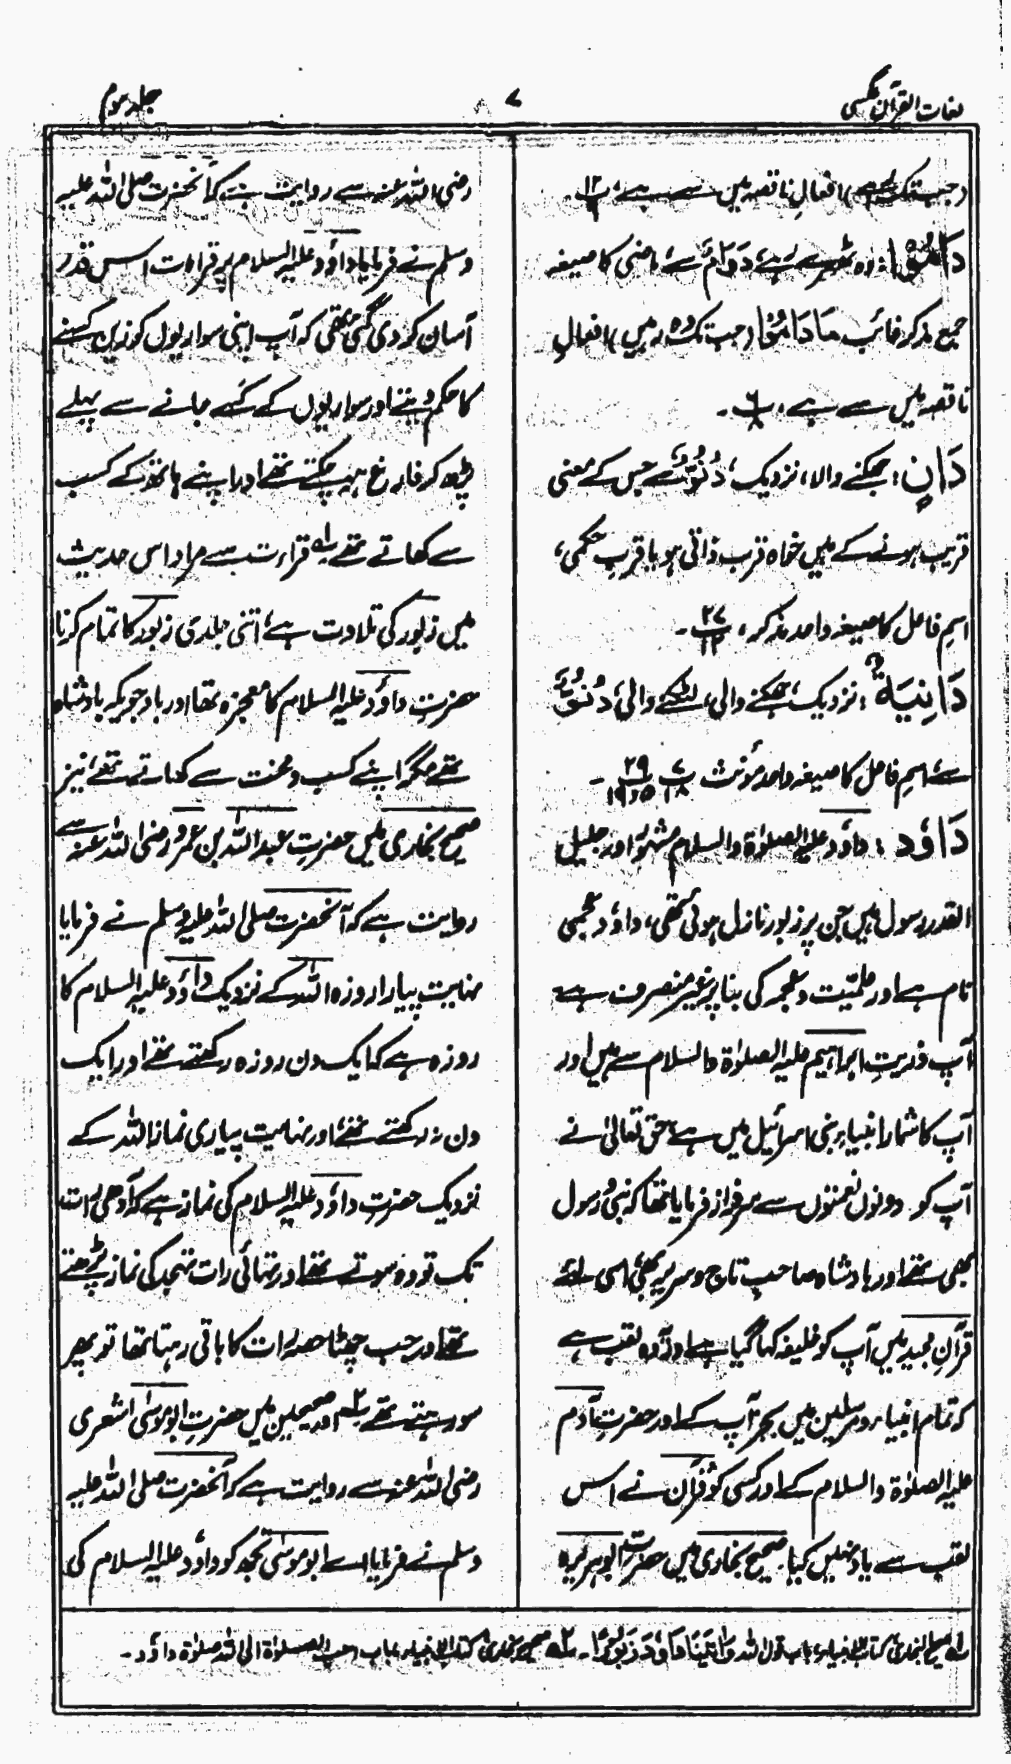 لغات القرآن عکسی
۷
جلد سوم
(جب تک رہے) افعالِ ناقصہ میں سے ہے، پ ۱۲
دَامُوْا: وہ ٹھہرے رہے، دَوَامٌ سے ماضی کا صیغہ
جمع مذکر غائب مَادَامُوْا (جب تک وہ رہیں) افعالِ
ناقصہ میں سے ہے، پ ۶
دَانٍ: جھکنے والا، نزدیک، دُنُوٌّ سے جس کے معنی
قریب ہونے کے ہیں خواہ قرب ذاتی ہو یا قربِ حکمی،
اسمِ فاعل کا صیغہ واحد مذکر، ۲۷
دَانِیَۃٌ: نزدیک، جھکنے والی، لٹکنے والی، دُنُوٌّ
سے اسمِ فاعل کا صیغہ واحد مؤنث پ ۷ ۱۸ ۲۹ ۱۹و۵۔
دَاوٗد: داؤد علیہ الصلوٰۃ والسلام مشہور اور جلیل
القدر رسول ہیں جن پر زبور نازل ہوئی تھی، داؤد عجمی
نام ہے اور علمیّت و عجمہ کی بنا پر غیر منصرف ہے
آپ ذریتِ ابراہیم علیہ الصلوٰۃ والسلام سے ہیں اور
آپ کا شمار انبیاءِ بنی اسرائیل میں ہے، حق تعالیٰ نے
آپ کو دونوں نعمتوں سے سرفراز فرمایا تھا کہ نبی و رسول
بھی تھے اور بادشاہ صاحبِ تاج و سریر بھی، اسی لئے
قرآنِ مجید میں آپ کو خلیفہ کہا گیا ہے اور یہ وہ لقب ہے
کہ تمام انبیاء و مرسلین میں بجز آپ کے اور حضرتِ آدم
علیہ الصلوٰۃ والسلام کے اور کسی کو قرآن نے اس
لقب سے یاد نہیں کیا صحیح بخاری میں حضرت ابوہریرہ
رضی اللہ عنہ سے روایت ہے کہ آنحضرت صلی اللہ علیہ
وسلم نے فرمایا داؤد علیہ السلام پر قراءت اس قدر
آسان کر دی گئی تھی کہ آپ اپنی سواریوں کو زین کسنے
کا حکم دیتے اور سواریوں کے کسے جانے سے پہلے
پڑھ کر فارغ ہو چکتے تھے اور اپنے ہاتھ کے کسب
سے کھاتے تھے ۱؎ قراءت سے مراد اس حدیث
میں زبور کی تلاوت ہے، اتنی جلدی زبور کا تمام کرنا
حضرتِ داؤد علیہ السلام کا معجزہ تھا اور باوجودیکہ بادشاہ
تھے مگر اپنے کسب و محنت سے کھاتے تھے، نیز
صحیح بخاری میں حضرتِ عبداللہ بن عمرو رضی اللہ عنہ سے
روایت ہے کہ آنحضرت صلی اللہ علیہ وسلم نے فرمایا
نہایت پیارا روزہ اللہ کے نزدیک داؤد علیہ السلام کا
روزہ ہے کہ ایک دن روزہ رکھتے تھے اور ایک
دن نہ رکھتے تھے، اور نہایت پیاری نماز اللہ کے
نزدیک حضرتِ داؤد علیہ السلام کی نماز ہے کہ آدھی رات
تک تو وہ سوتے تھے اور تہائی رات تہجد کی نماز پڑھتے
تھے اور جب چھٹا حصہ رات کا باقی رہتا تھا تو پھر
سو رہتے تھے ۲؎ اور صحیحین میں حضرتِ ابو موسٰی اشعری
رضی اللہ عنہ سے روایت ہے کہ آنحضرت صلی اللہ علیہ
وسلم نے فرمایا اے ابو موسٰی تجھ کو داؤد علیہ السلام کی
۱؎ صحیح البخاری کتاب الانبیاء، باب قول اللہ وَاٰتَیْنَا دَاوٗدَ زَبُوْرًا۔ ۲؎ صحیح بخاری کتاب الانبیاء باب احب الصلوٰۃ الی اللہ صلوٰۃ داؤد۔